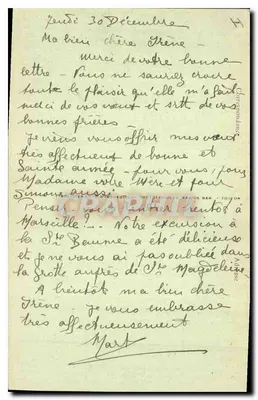 Jeudi 30 Décembre
Ma bien chère Irène -
Merci de votre bonne
lettre - Vous ne sauriez croire
toute le plaisir qu'elle m'a fait
merci de vos vœux et srtt de vos
bonnes prières -
Je viens vous offrir mes vœux
très affectueux de bonne et
Sainte année - pour vous, pour
Madame votre Mère et pour
Simone aussi -
Pensez vous rentrer bientôt à
Marseille ?.. Notre excursion à
la Ste Baume a été délicieuse
et je ne vous ai pas oubliée dans
la grotte auprès de Ste Magdeleine
A bientôt ma bien chère
Irène - je vous embrasse
très affectueusement
Mart
Correspondance